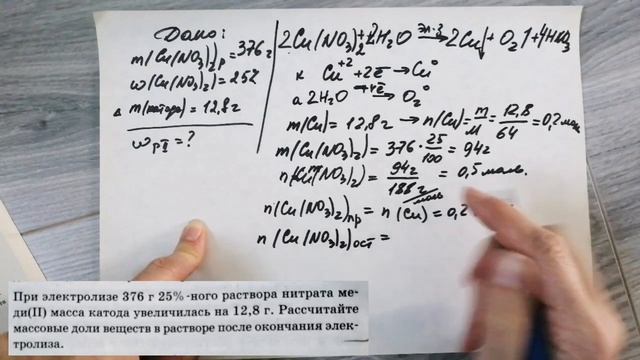 Дано:
m(Cu(NO3)2)р = 376 г
w(Cu(NO3)2) = 25%
Δ m(катода) = 12,8 г
w рII = ?
2Cu(NO3)2 + 2H2O эл-з → 2Cu↓ + O2↑ + 4HNO3
к Cu+2 + 2ē → Cu0
а 2H2O → O2 0
m(Cu) = 12,8 г → n(Cu) = m/M = 12,8/64 = 0,2 моль
m(Cu(NO3)2) = 376 · 25/100 = 94 г
n(Cu(NO3)2) = 94 г/188 г/моль = 0,5 моль.
n(Cu(NO3)2)пр = n(Cu) = 0,2
n(Cu(NO3)2)ост =
При электролизе 376 г 25%-ного раствора нитрата ме-
ди(II) масса катода увеличилась на 12,8 г. Рассчитайте
массовые доли веществ в растворе после окончания элек-
тролиза.